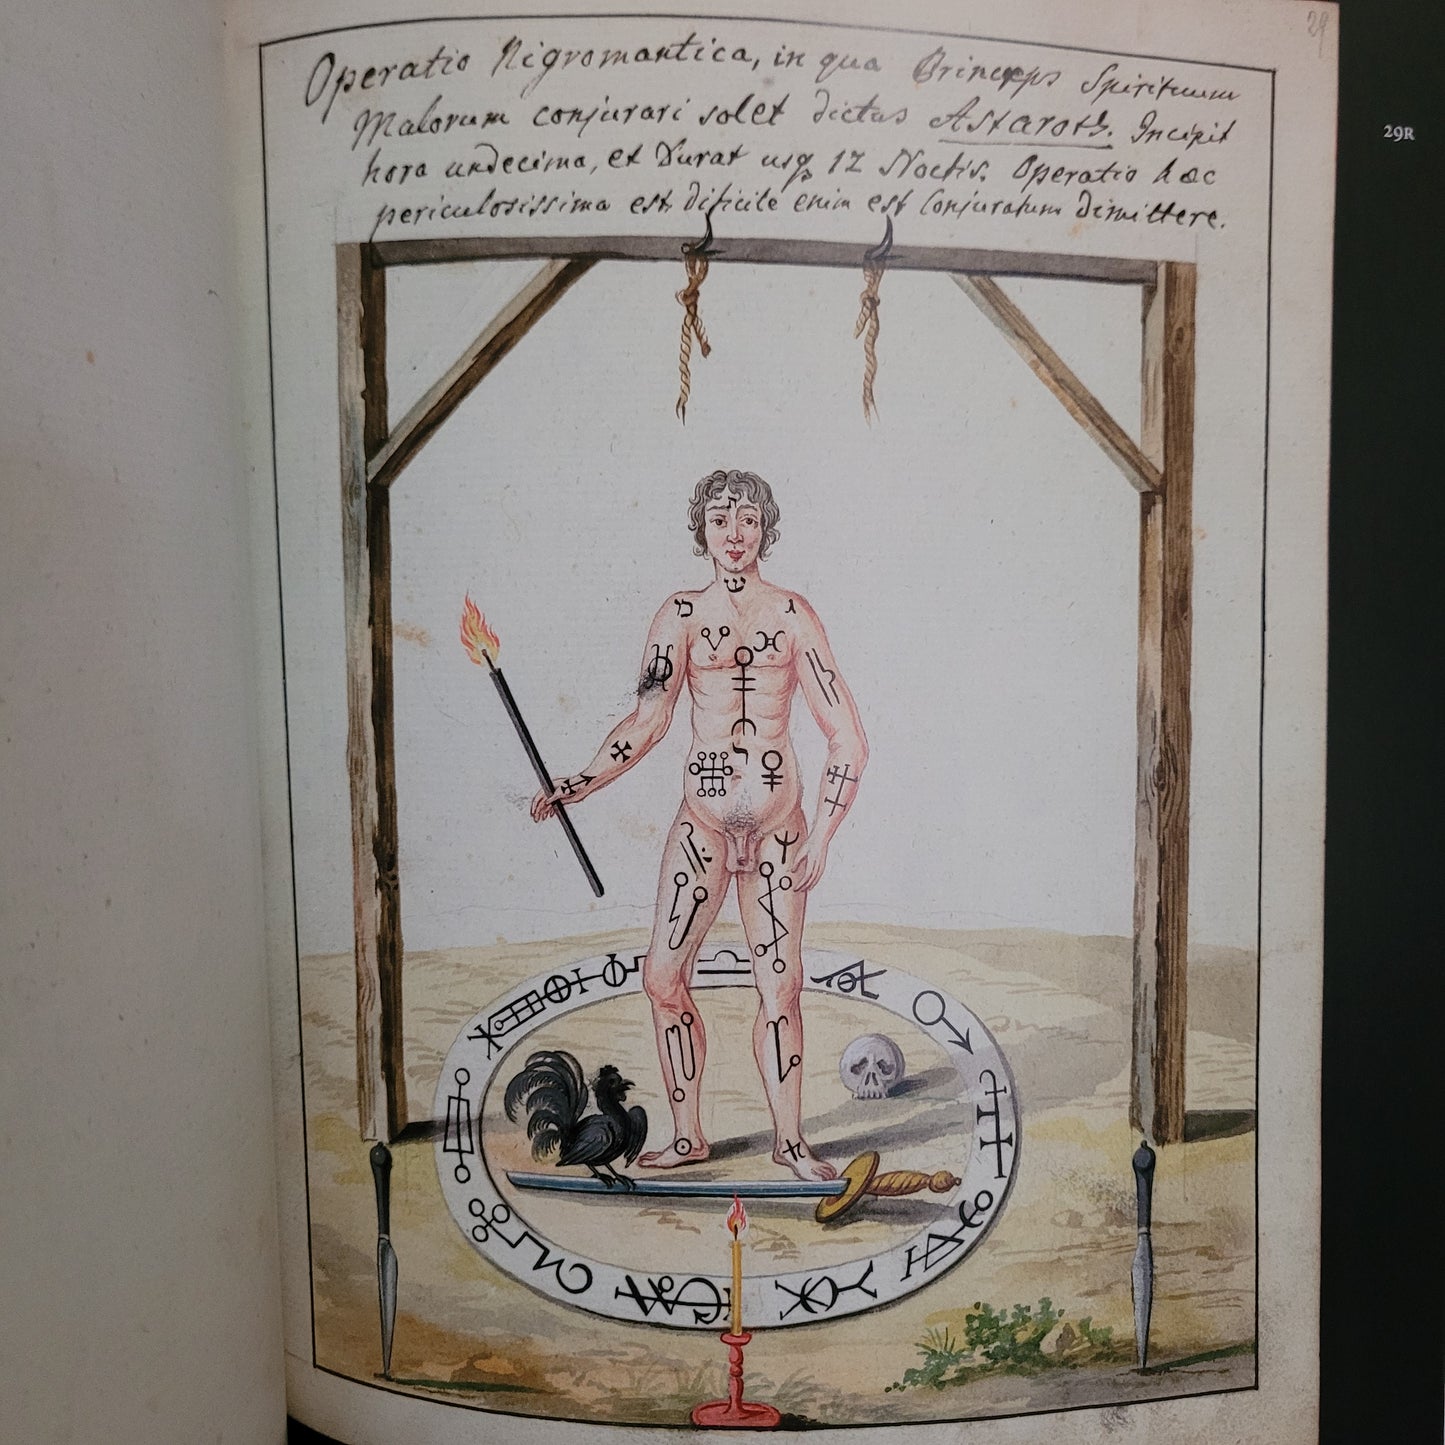 29
Operatio Nigromantica, in qua Princeps Spirituum
Malorum conjurari solet dictus Astaroth. Incipit
hora undecima, et Durat usq 12 Noctis. Operatio haec
periculosissima est, dificile enim est Conjuratum dimittere.
29R
ת
ש
מ
ג